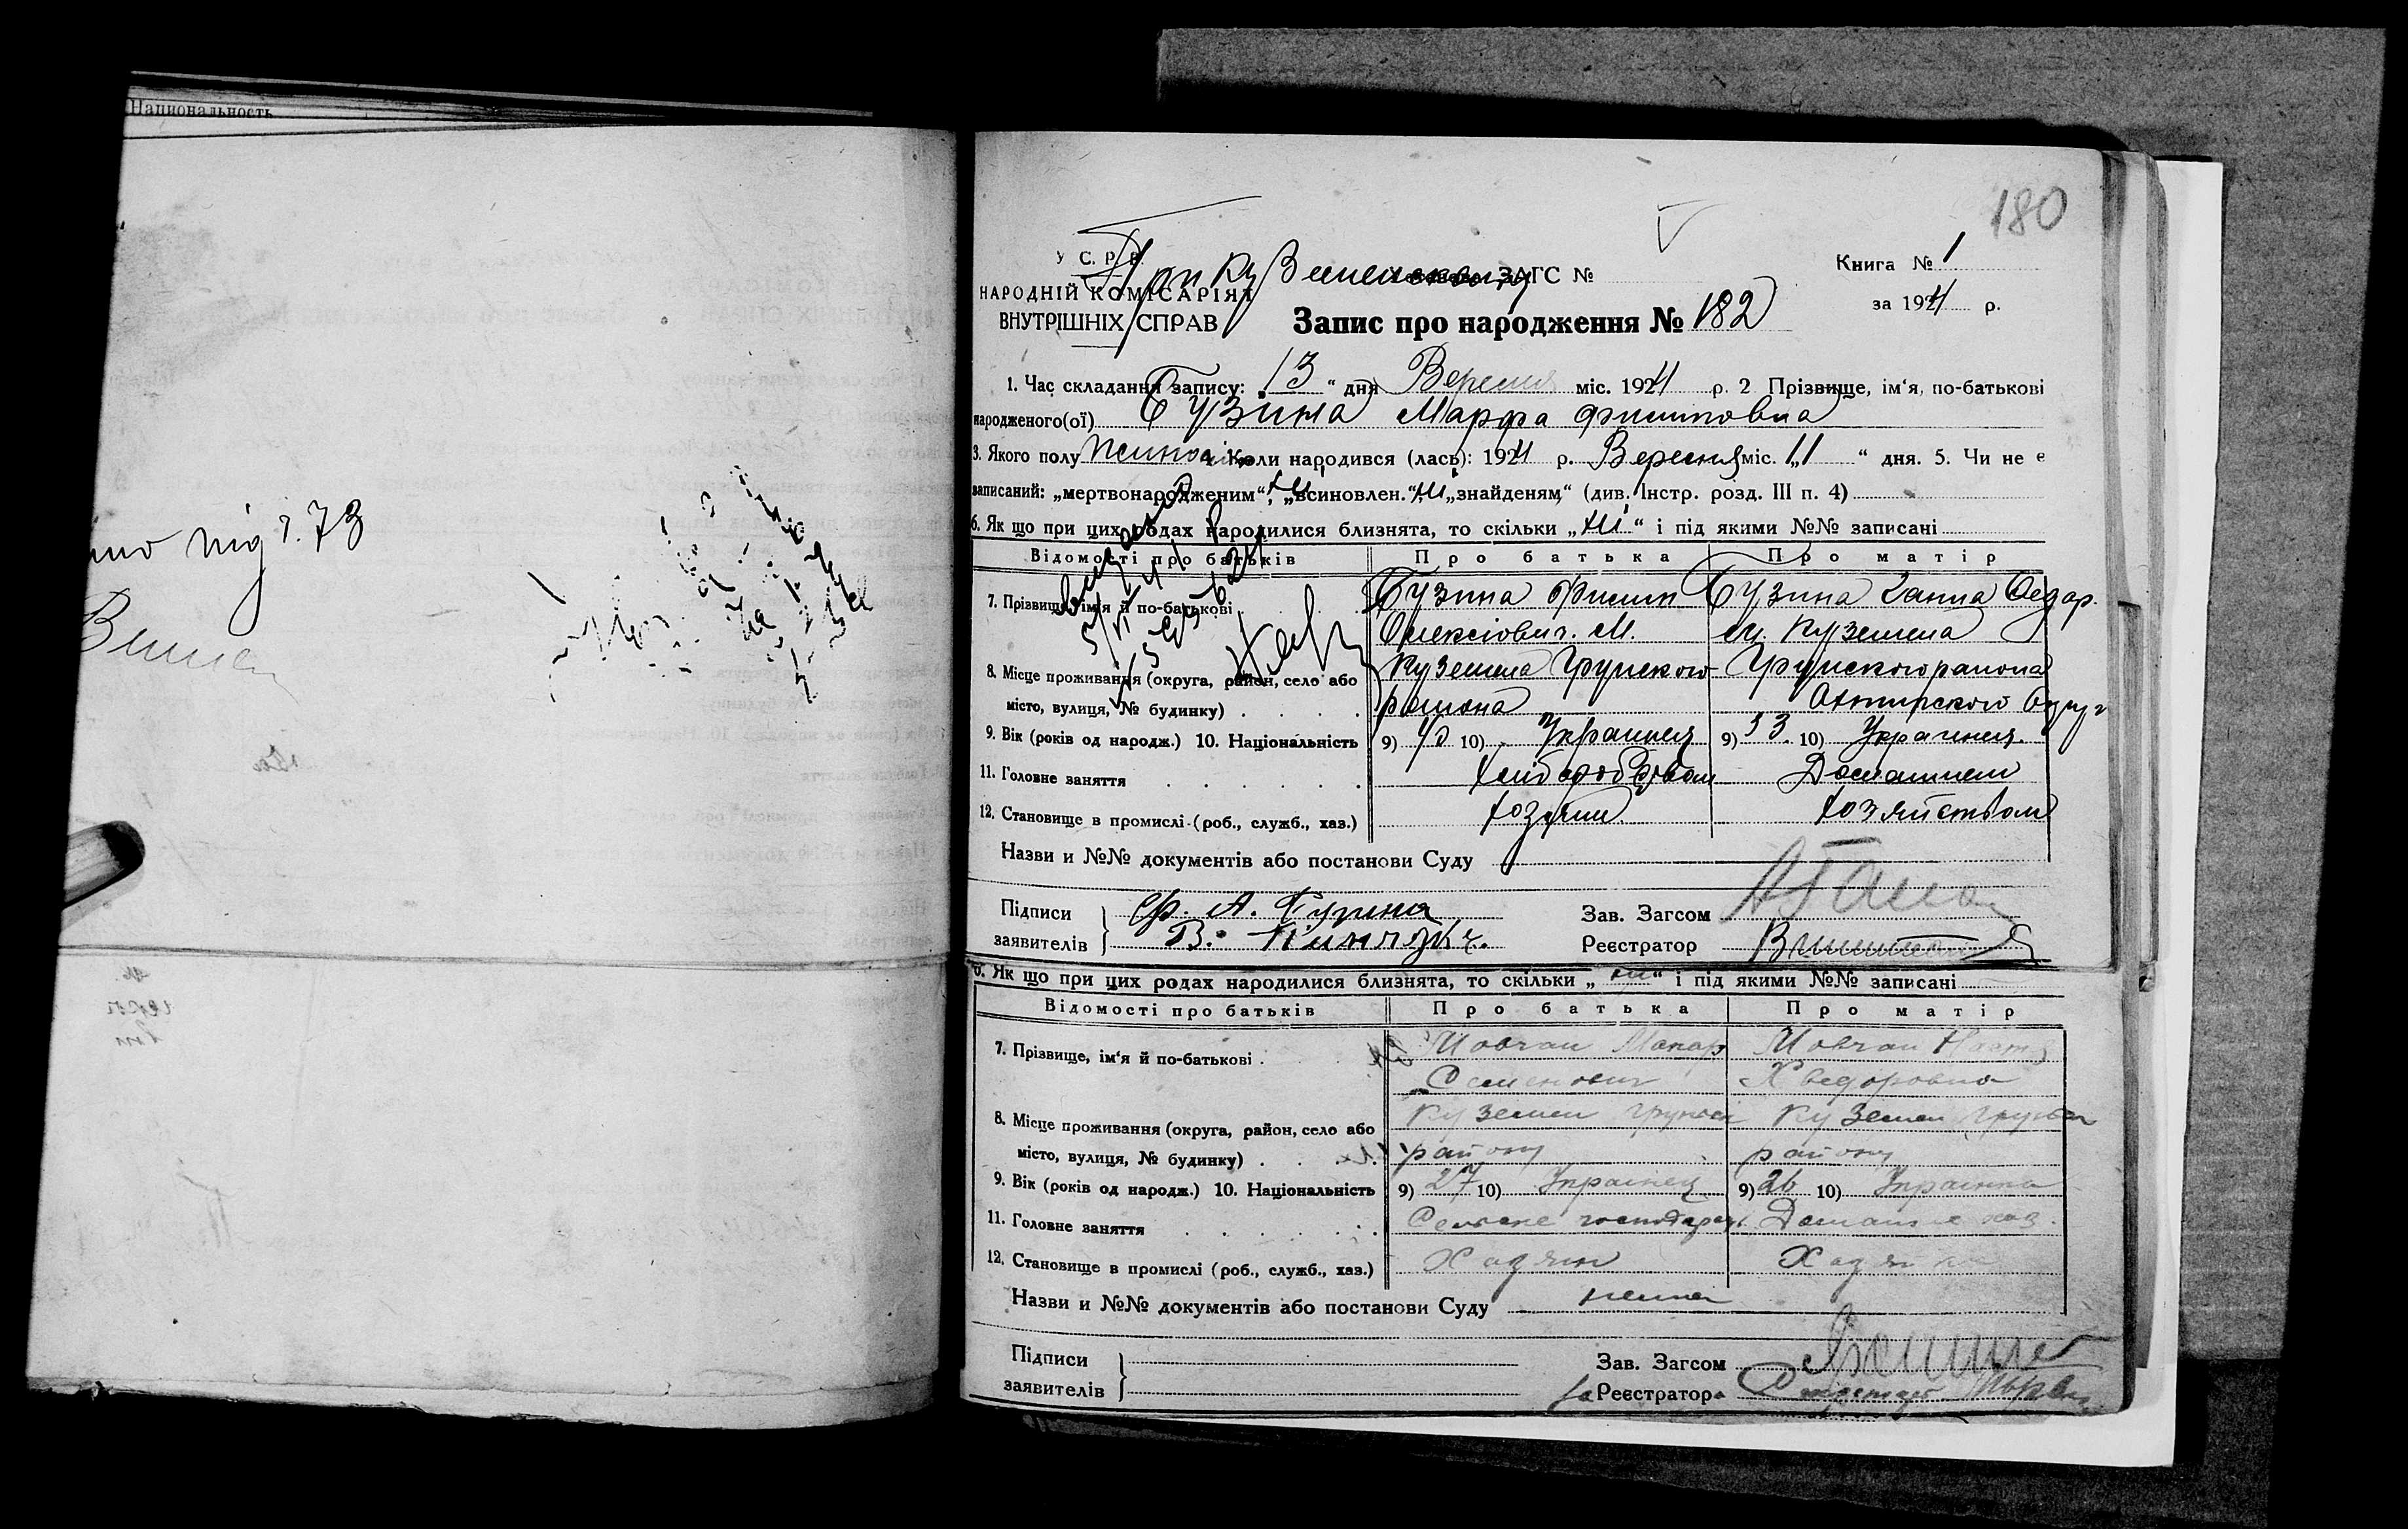 Национальность
під г. 73
180
У. С. Р. Р.
НАРОДНІЙ КОМІСАРІЯТ
ВНУТРІШНІХ СПРАВ
При Куземенськом ЗАГС №
Книга № 1
за 1924 р.
Запис про народження № 182
1. Час складання запису: „13“ дня Вересня міс. 1924 р. 2 Прізвище, ім‘я, по-батькові
народженого(ої) Бузина Марфа Филиповна
3. Якого полу 4. Коли народився (лась): 1924 р. Вересня міс. „11“ дня. 5. Чи не є
записаний: „мертвонародженим“, ні „всиновлен.“ ні „знайденям“ (див. Інстр. розд. III п. 4)
6. Як що при цих родах народилися близнята, то скільки „ні“ і під якими №№ записані
Відомості про батьків Про батька Про матір
7. Прізвище, ім‘я й по-батькові Бузина Филип Бузина Ганна Федор.
Олексіович. М. м. Куземена
8. Місце проживання (округа, район, село або Куземена Грунского Грунского района
місто, вулиця, № будинку) района Охтирского Округ
9. Вік (років од народж.) 10. Національність 9) 40 10) Украинец 9) 33 10) Украинец
11. Головне заняття Хліборобством Домашнем
12. Становище в промислі (роб., служб., хаз.) хозяин хозяйством
Назви и №№ документів або постанови Суду
Підписи
заявителів
Ф. А. Бузина
В.
Зав. Загсом
Реєстратор
6. Як що при цих родах народилися близнята, то скільки „ні“ і під якими №№ записані
Відомості про батьків Про батька Про матір
7. Прізвище, ім‘я й по-батькові Мовчан Макар Мовчан
Семенович Хведоровна
8. Місце проживання (округа, район, село або Куземен Куземен
місто, вулиця, № будинку) району району
9. Вік (років од народж.) 10. Національність 9) 27 10) Украінец 9) 26 10) Украінка
11. Головне заняття Сельске господар. Домашне хоз.
12. Становище в промислі (роб., служб., хаз.) Хадяин
Назви и №№ документів або постанови Суду нема
Підписи
заявителів
Зав. Загсом
За Реєстратора